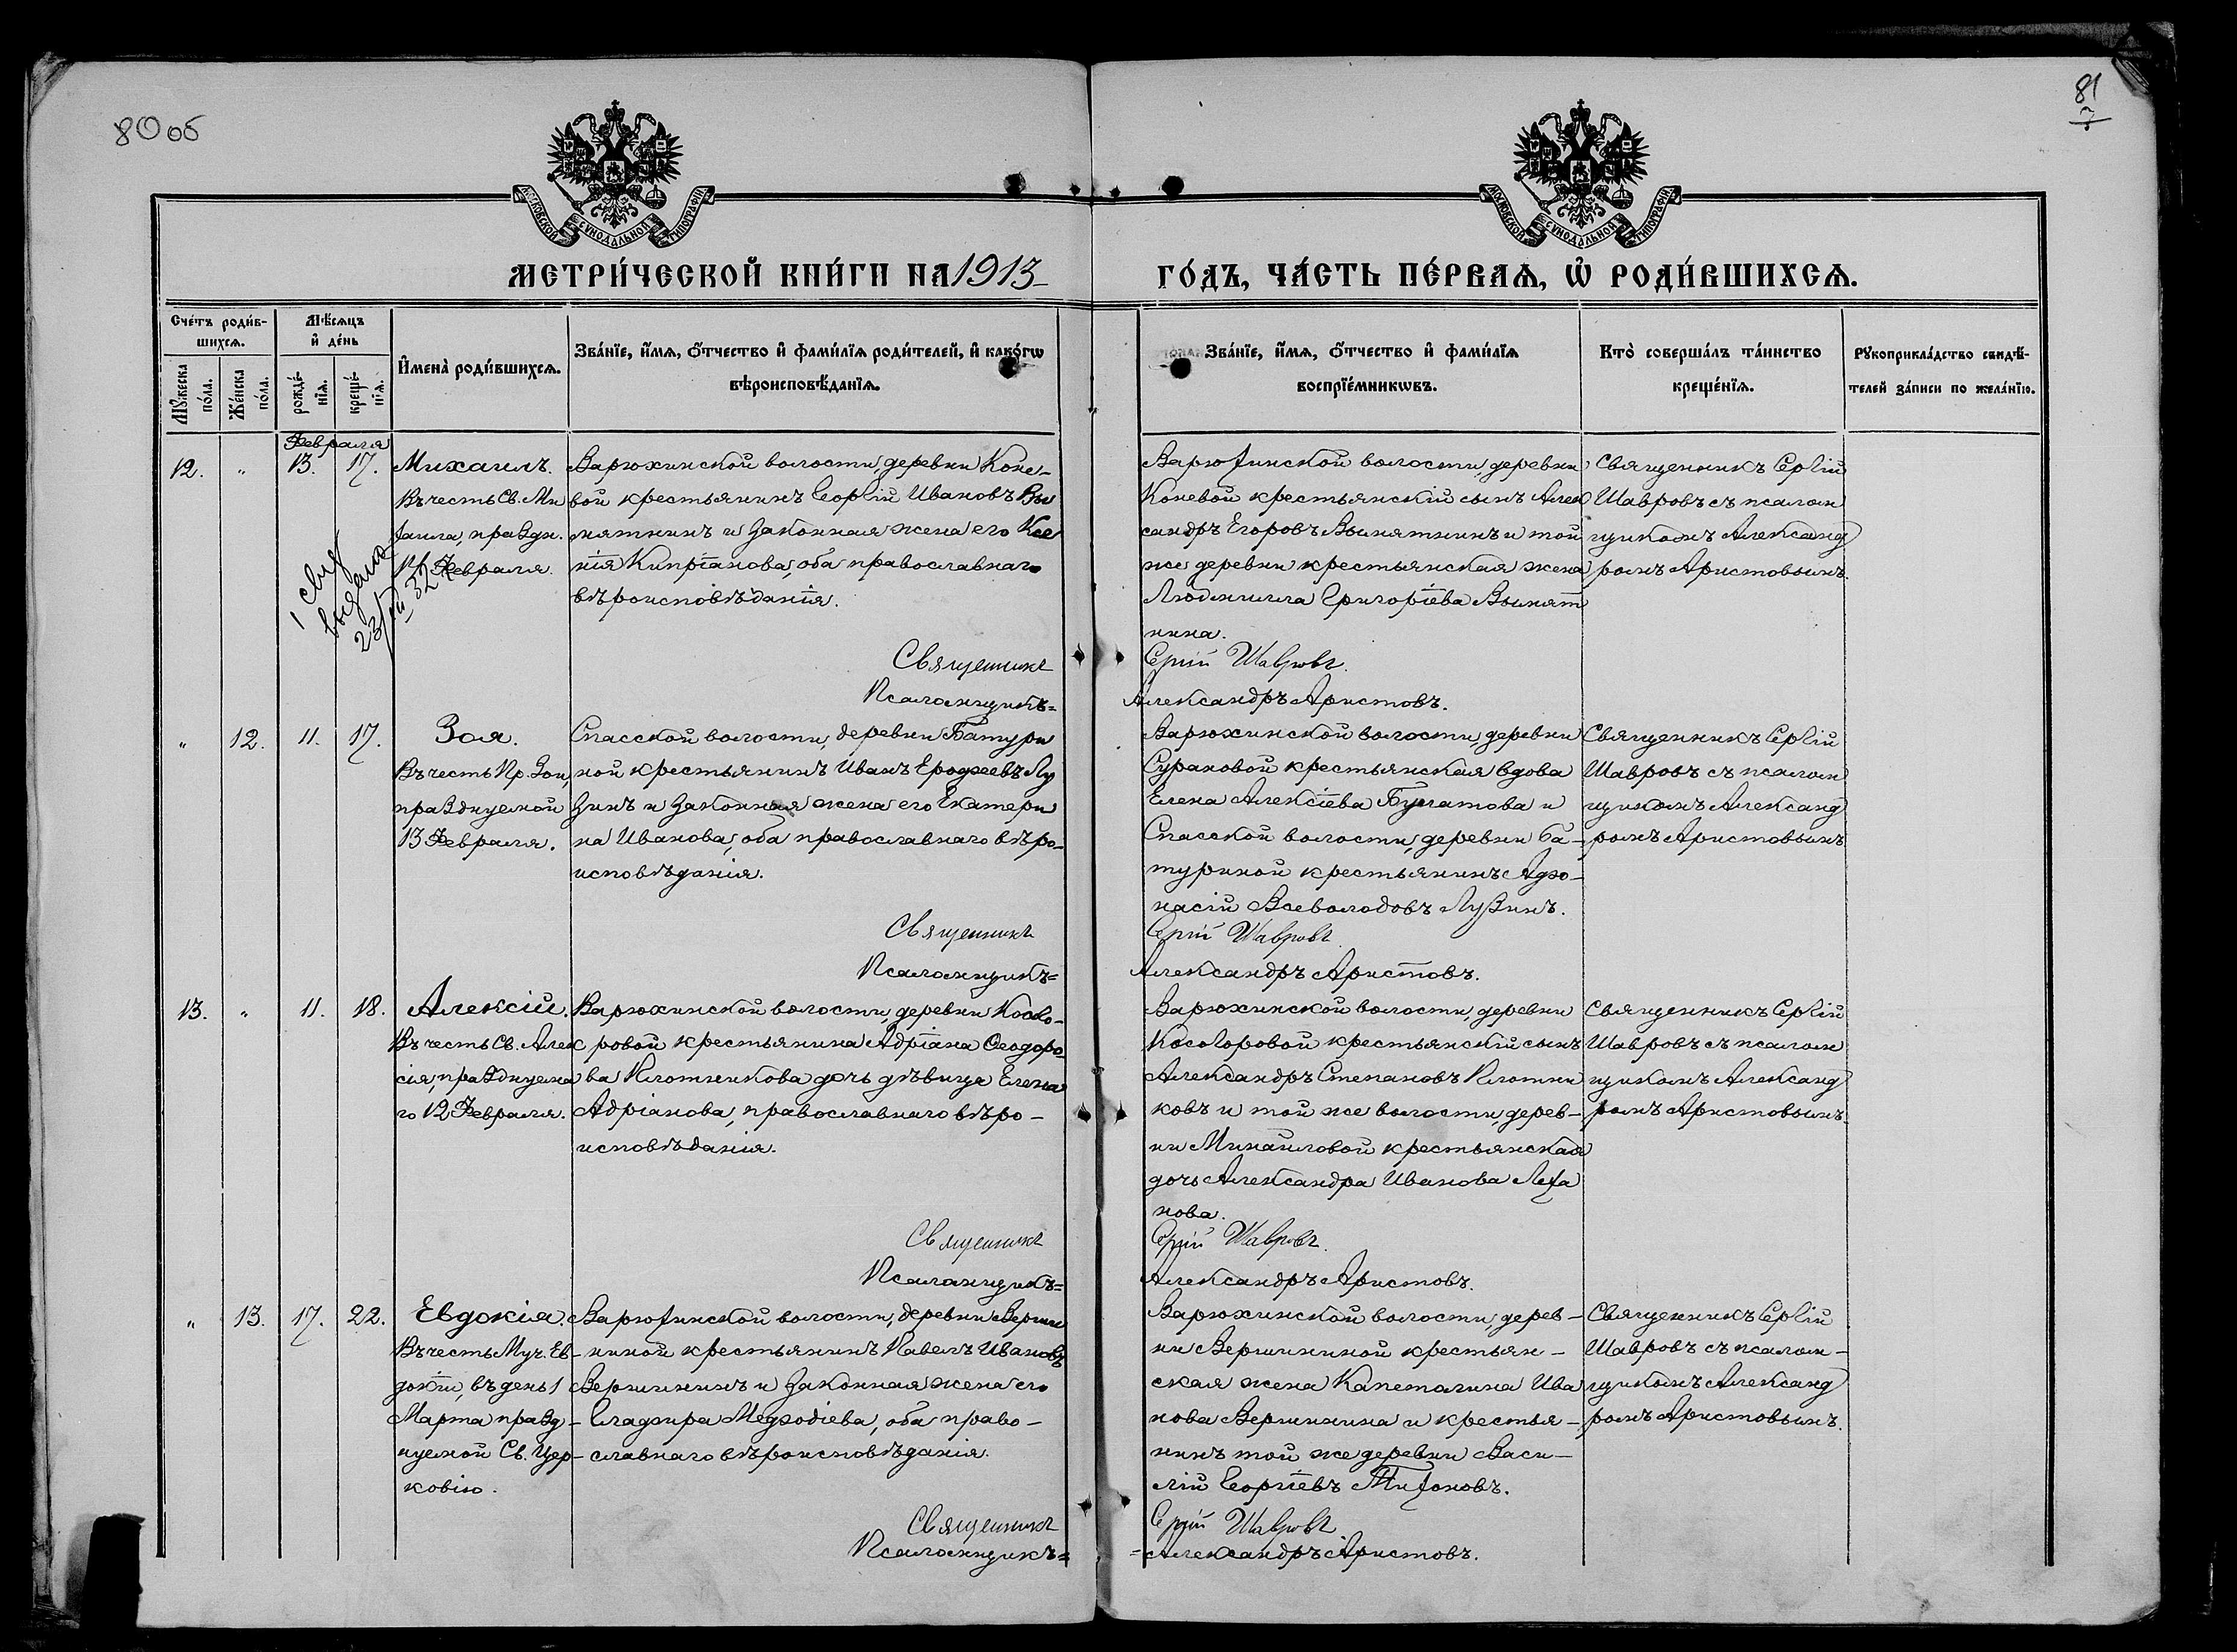 80об
81
7
МОСКОВСКОЙ СУНОДАЛЬНОЙ ТИПОГРАФІИ
МОСКОВСКОЙ СУНОДАЛЬНОЙ ТИПОГРАФІИ
МЕТРИ́ЧЕСКОЙ КНИ́ГИ НА 1913
ГО́ДЪ, ЧА́СТЬ ПЕ́РВАѦ, Ѡ҆ РОДИ́ВШИХСѦ.
Сче́тъ роди́в-
шихсѧ.
Мѣ́сѧцъ
и҆ де́нь
Мꙋ́жеска
по́ла.
Же́нска
по́ла.
рожде́-
нїѧ.
креще́-
нїѧ.
И҆мена̀ роди́вшихсѧ.
Зва́нїе, и҆́мѧ, ѻ҆́тчество и҆ фами́лїѧ роди́телей, и҆ како́гѡ
вѣроисповѣ́данїѧ.
Зва́нїе, и҆́мѧ, ѻ҆́тчество и҆ фами́лїѧ
воспрїе́мникѡвъ.
Кто̀ соверша́лъ та́инство
креще́нїѧ.
Рꙋкоприкла́дство свидѣ́-
телей за́писи по жела́нїю.
Февраля
12. " 13. 17.
Михаилъ.
Въ честь Св. Ми
хаила, праздн.
14 Февраля.
1 свид
выдана
23/III 32 г
Варюхинской волости, деревни Коне-
вой крестьянинъ Георгій Ивановъ Вы
мятнинъ и законная жена его Ксе
нія Кипріанова, оба православнаго
вѣроисповѣданія.
Священникъ
Псаломщикъ=
Варюхинской волости, деревни
Коневой крестьянскій сынъ Алек
сандръ Егоровъ Вымятнинъ и той
же деревни крестьянская жена
Людмилла Григоріева Вымят
нина.
Сергій Шавровъ.
Александръ Аристовъ.
Священникъ Сергій
Шавровъ съ псалом
щикомъ Александ
ромъ Аристовымъ.
" 12. 11. 17.
Зоя.
Въ честь Пр. Зои,
празднуемой
13 Февраля.
Спасской волости, деревни Батури
ной крестьянинъ Иванъ Ерофеевъ Лу
зинъ и законная жена его Екатери
на Иванова, оба православнаго вѣро-
исповѣданія.
Священникъ
Псаломщикъ=
Варюхинской волости, деревни
Сурановой крестьянская вдова
Елена Алексіева Булатова и
Спасской волости, деревни Ба-
туриной крестьянинъ Афо-
насій Всеволодовъ Лузинъ.
Сергій Шавровъ
Александръ Аристовъ.
Священникъ Сергій
Шавровъ съ псалом
щикомъ Александ
ромъ Аристовымъ
13. " 11. 18.
Алексій.
Въ честь Св. Алек
сія, празднуема
го 12 Февраля.
Варюхинской волости, деревни Косого-
ровой крестьянина Адріана Ѳеодоро-
ва Плотникова дочь дѣвица Елена
Адріанова, православнаго вѣро-
исповѣданія.
Священникъ
Псаломщикъ=
Варюхинской волости, деревни
Косогоровой крестьянскій сынъ
Александръ Степановъ Плотни
ковъ и той же волости, дерев-
ни Михайловой крестьянская
дочь Александра Иванова Леха
нова.
Сергій Шавровъ.
Александръ Аристовъ.
Священникъ Сергій
Шавровъ съ псалом
щикомъ Александ
ромъ Аристовымъ.
" 13. 17. 22.
Евдокія.
Въ честь Муч. Ев-
докіи, въ день 1
Марта празд-
нуемой Св. Цер-
ковію.
Варюхинской волости, деревни Верши
ниной крестьянинъ Павелъ Ивановъ
Вершининъ и законная жена его
Глафира Мефодіева, оба право-
славнаго вѣроисповѣданія.
Священникъ
Псаломщикъ=
Варюхинской волости, дерев-
ни Вершининой крестьян-
ская жена Капеталина Ива
нова Вершинина и крестья-
нинъ той же деревни Васи-
лій Георгіевъ Тихоновъ.
Сергій Шавровъ
=Александръ Аристовъ.
Священникъ Сергій
Шавровъ съ псалом-
щикомъ Александ
ромъ Аристовымъ.